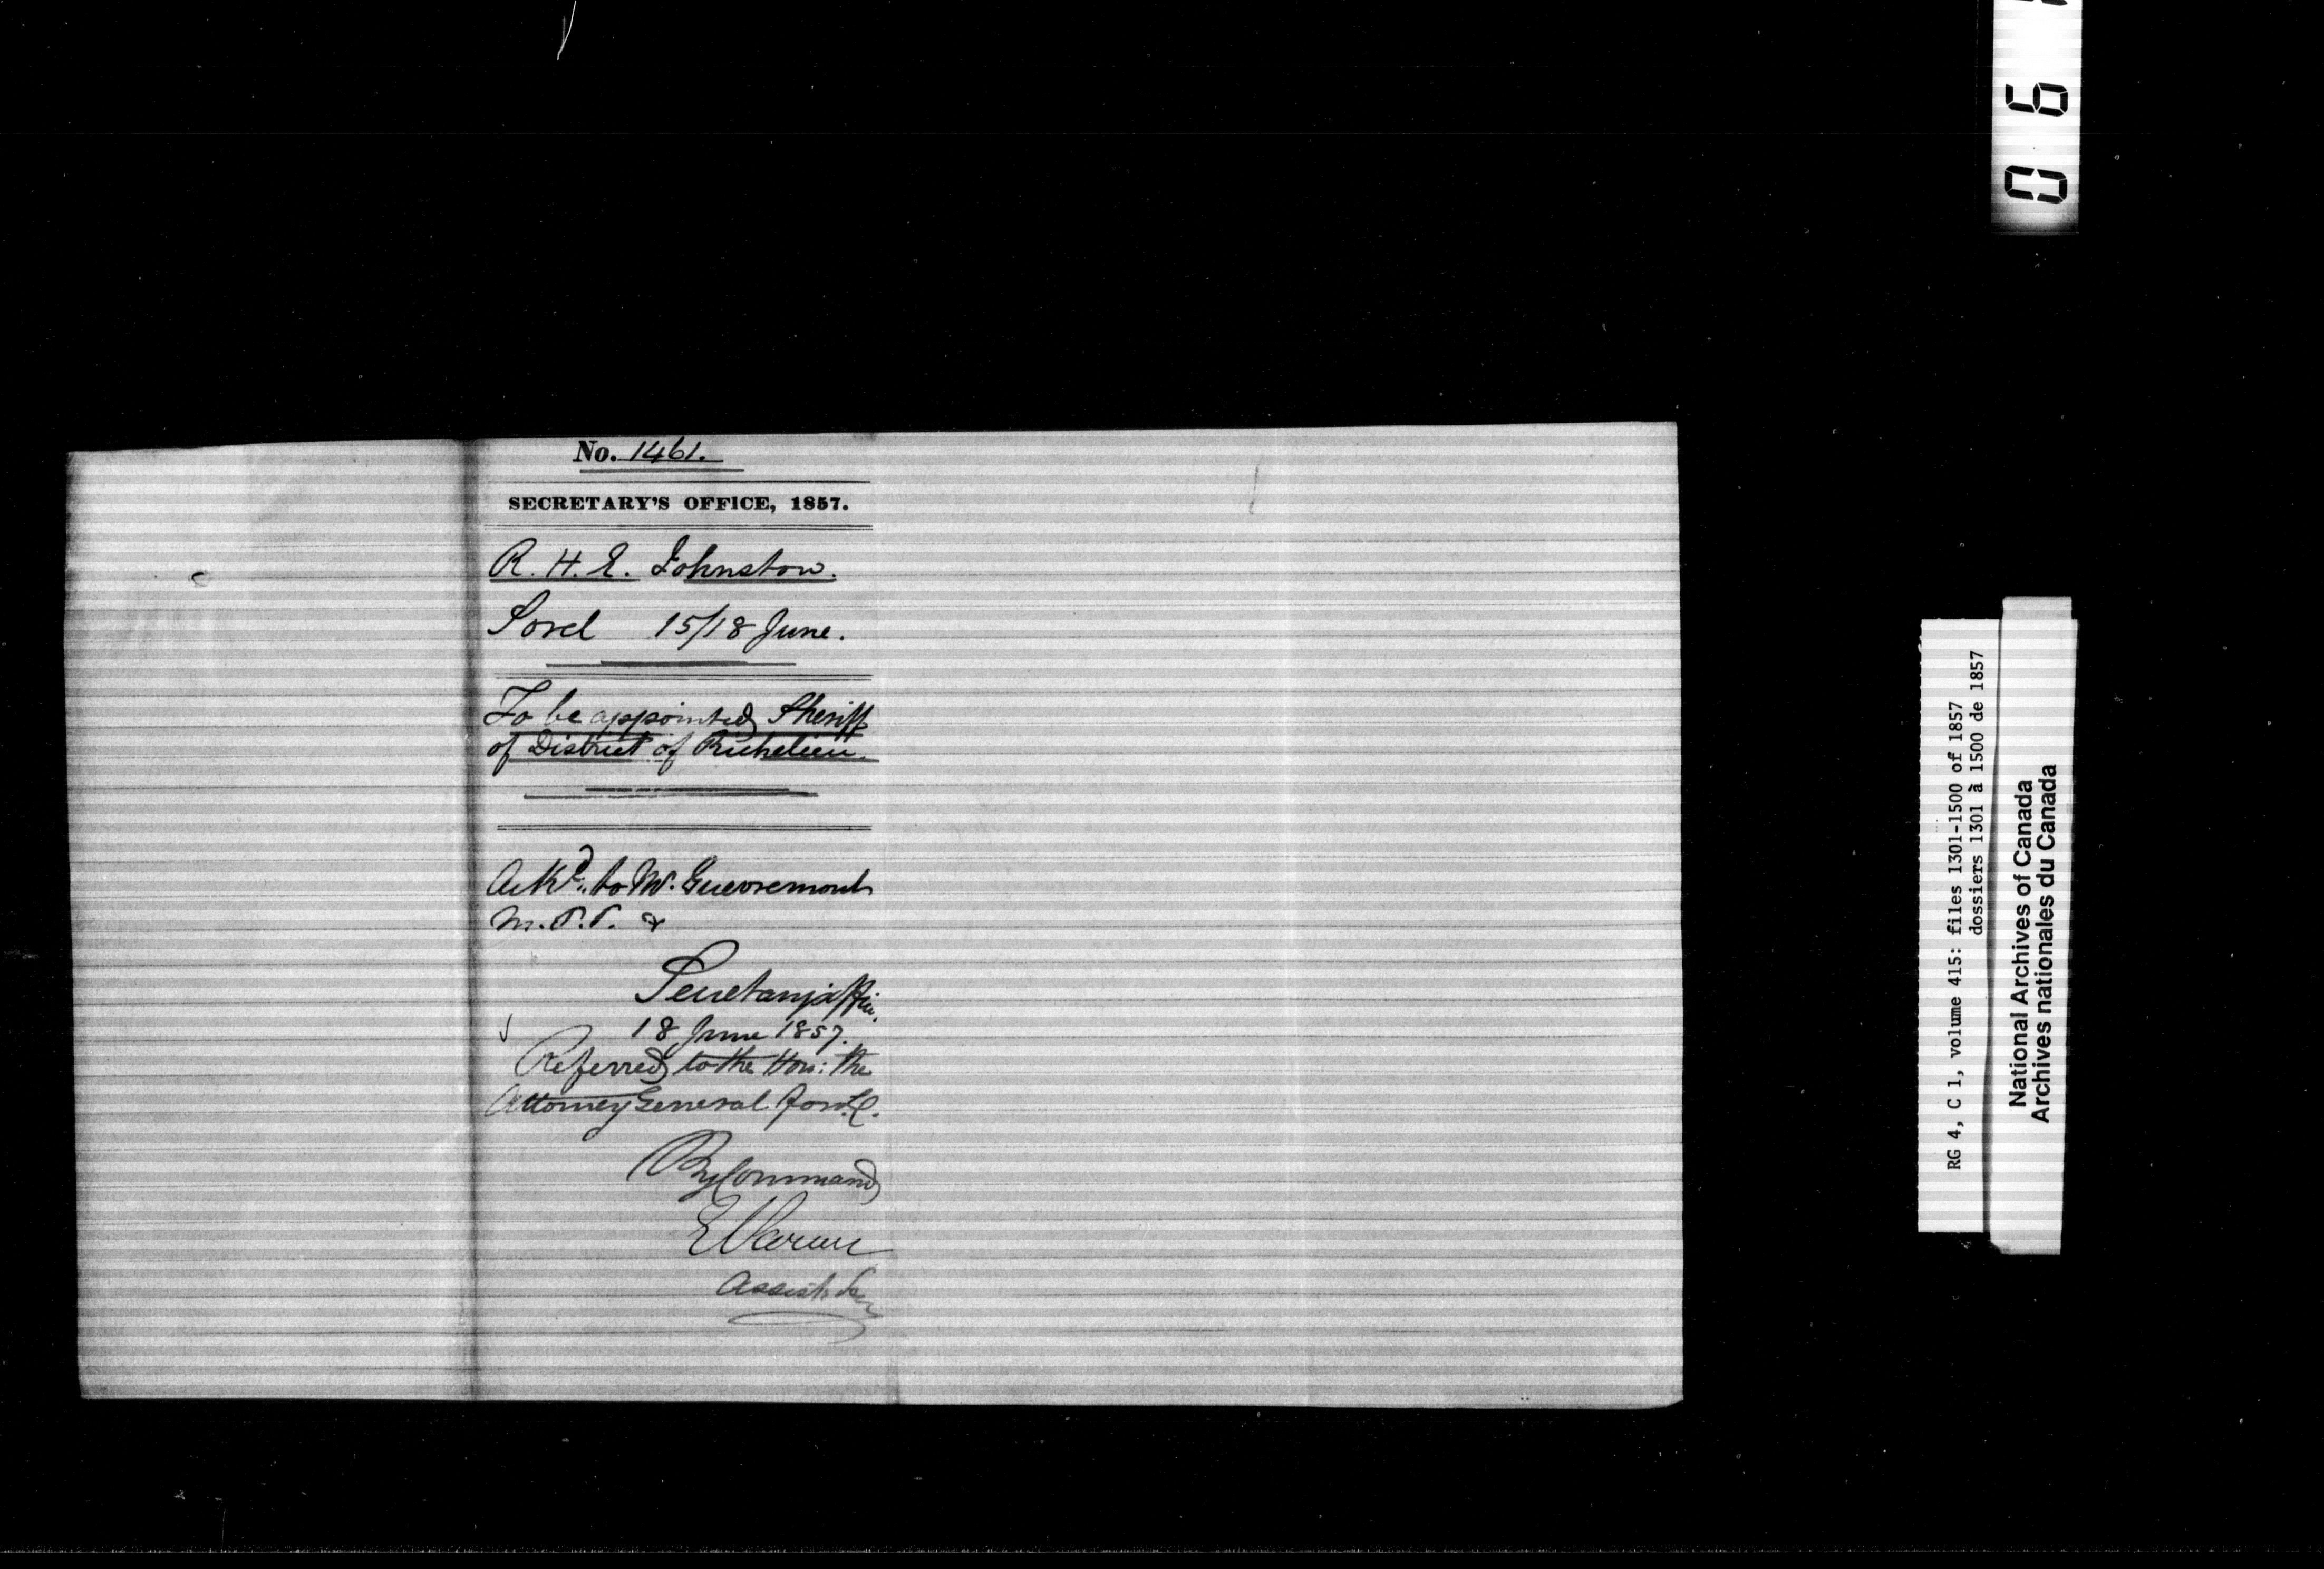 No. 1461.
SECRETARY'S OFFICE, 1857.
R. H. E. Johnston.
Sorel 15/18 June.
To be appointed Sheriff
of District of Richelieu.
Ackd. to Mr. Guevremont
M.P.P. &
Secretary's Office.
18 June 1857.
Referred to the Hon: the
Attorney General for L.C.
By Command
E Parent
Assist. Secy
0 6 1
RG 4, C 1, volume 415: files 1301-1500 of 1857
dossiers 1301 à 1500 de 1857
National Archives of Canada
Archives nationales du Canada